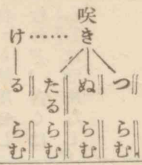 咲き……け
つらむ
ぬらむ
たるらむ
るらむ